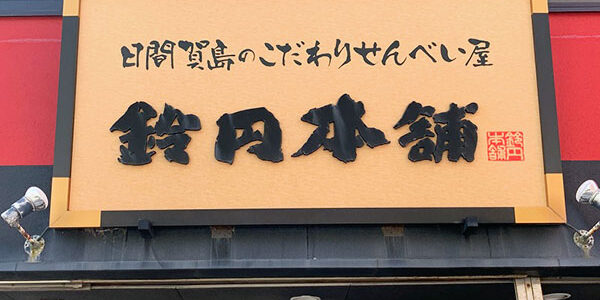 日間賀島のこだわりせんべい屋
鈴円本舗
鈴円
本舗